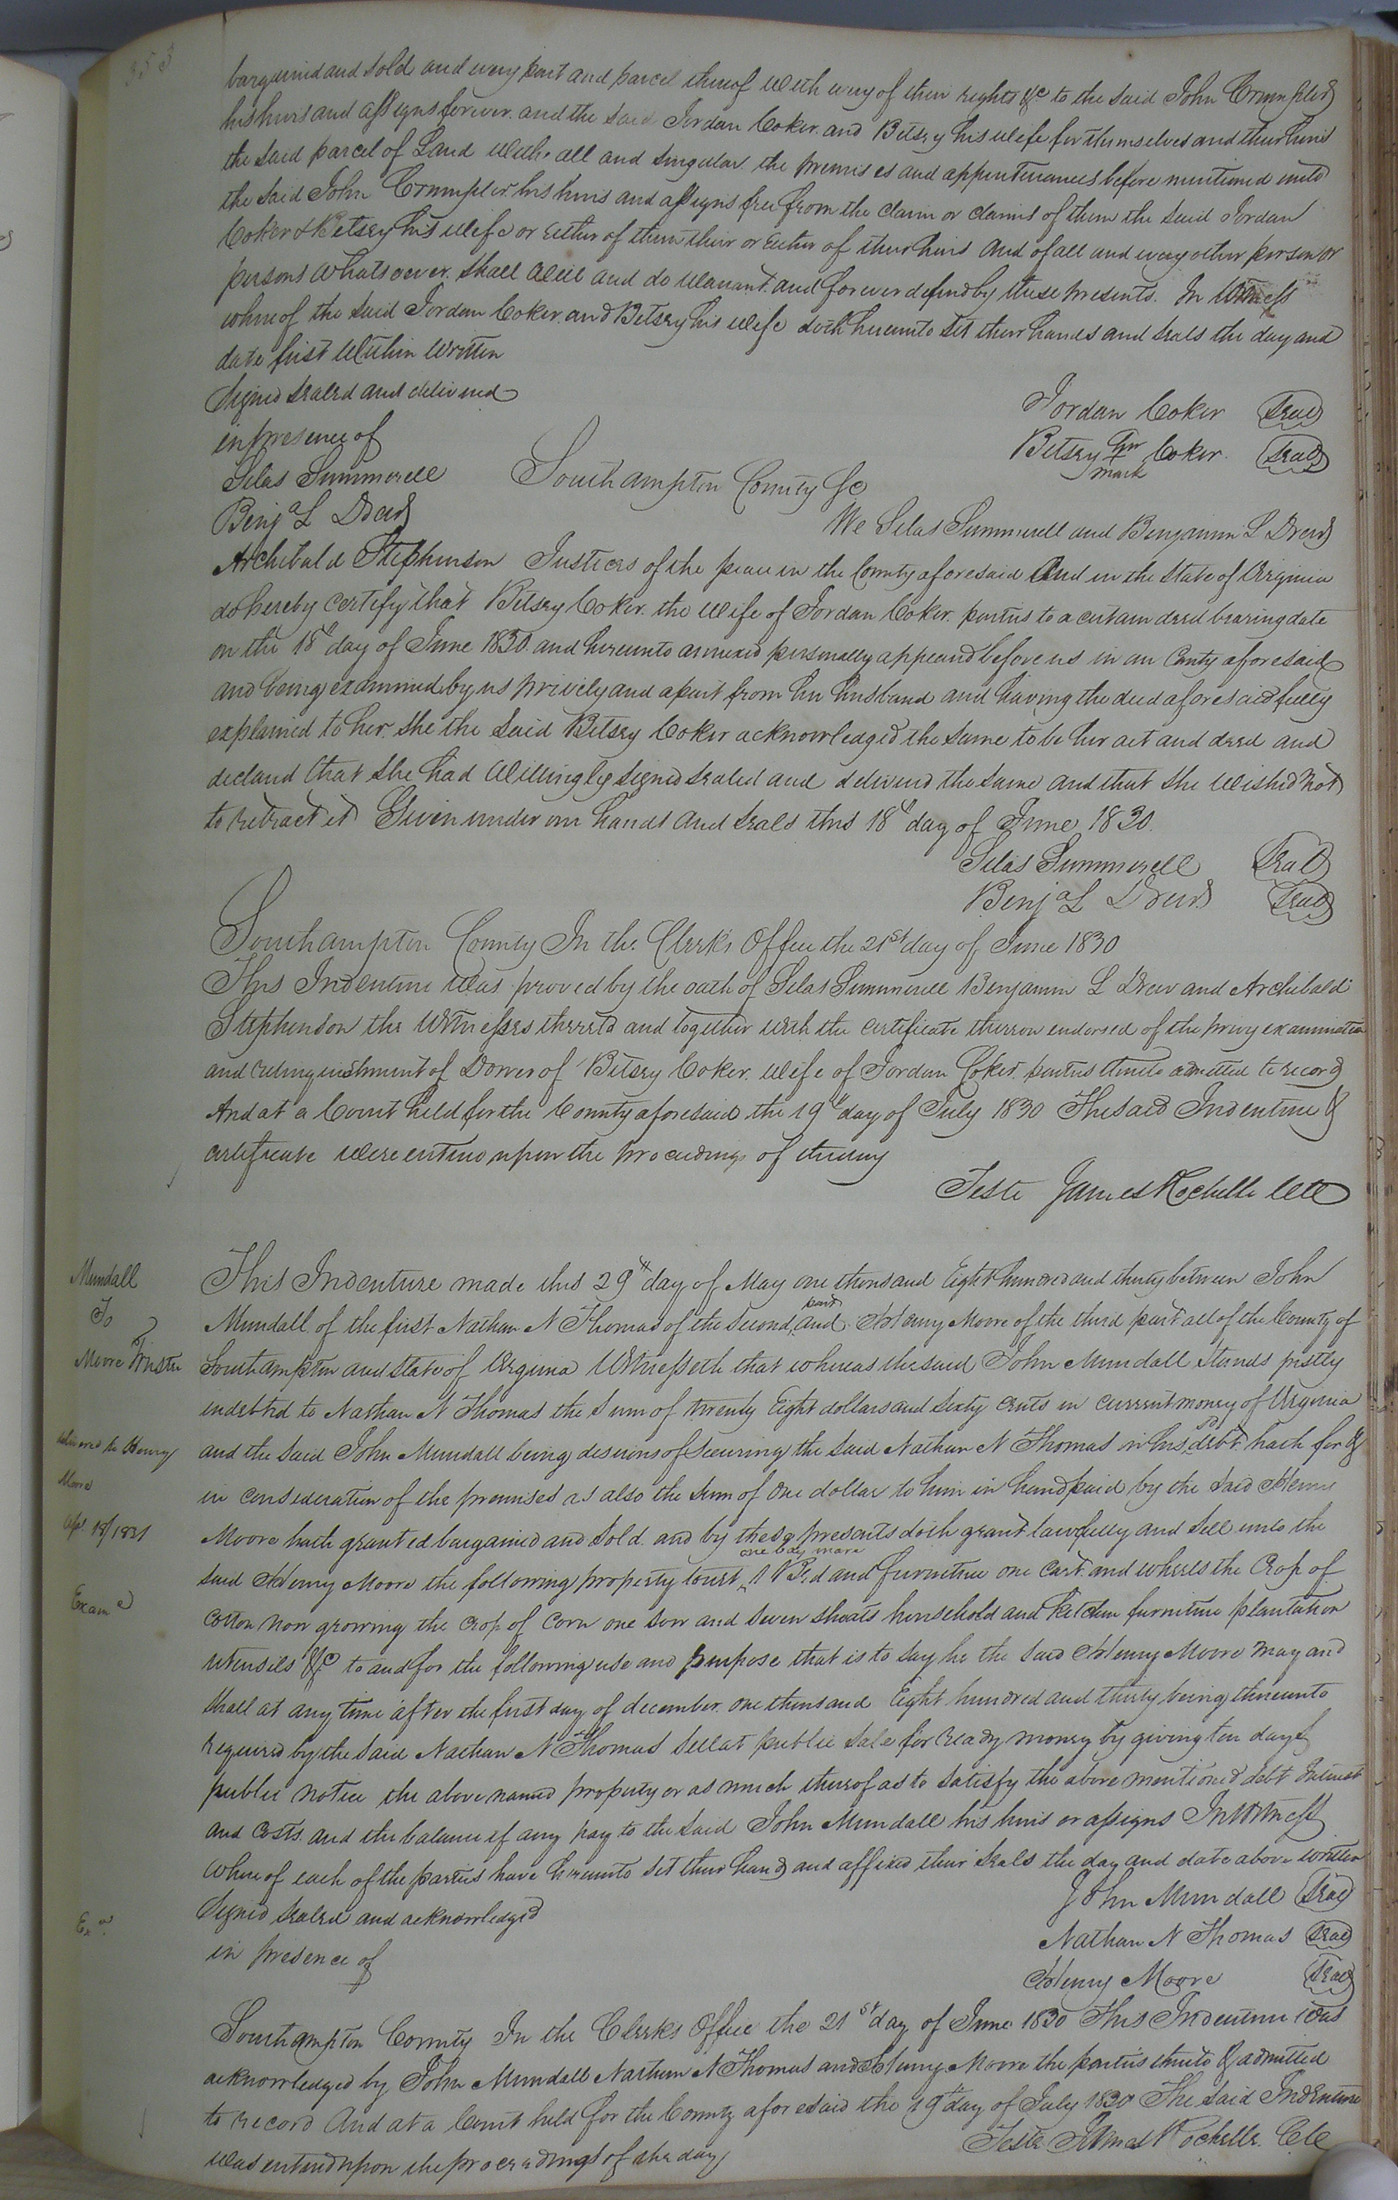 353
bargained and sold and every part and parcel thereof with every of their rights &c to the said John Crumpler
his heirs and assigns forever. and the said Jordan Coker. and Betsey his wife for themselves and their heirs
the said parcel of Land with all and singular the premises and appurtenances before mentioned unto
the said John Crumpler his heirs and assigns free from the claim or claims of them the said Jordan
Coker & Betsey his wife or either of them their or either of their heirs and of all and every other person or
persons whatsoever. shall will and do warrant and forever defend by these presents. In Witness
whereof the said Jordan Coker. and Betsey his wife doth hereunto set their hands and seals the day and
date first within written
Signed sealed and delivered
in presence of
Jordan Coker Seal
Betsey her + mark Coker. Seal
Silas Summerell
Benja L Drew
Archibald Stephenson
Southampton County &c
We Silas Summerell and Benjamin L Drew
Justices of the peace in the County aforesaid And in the State of Virginia
do hereby certify that Betsey Coker. the wife of Jordan Coker. parties to a certain deed bearing date
on the 18th day of June 1830. and hereunto annexed personally appeared before us in our County aforesaid
and being examined by us privily and apart from her husband and having the deed aforesaid fully
explained to her. she the said Betsey Coker acknowledged the same to be her act and deed and
declared that she had willingly signed sealed and delivered the same and that she wished not
to retract it Given under our hands and seals this 18th day of June 1830.
Silas Summerell Seal
Benja L Drew Seal
Southampton County In the Clerk's Office the 21st day of June 1830
This Indenture was proved by the oath of Silas Summerell Benjamin L Drew and Archibald
Stephenson the Witnesses thereto and together with the certificate thereon endorsed of the privy examination
and relinquishment of Dower of Betsey Coker. wife of Jordan Coker parties thereto admitted to record
And at a Court held for the County aforesaid the 19th day of July 1830 The said Indenture &
certificate were entered upon the proceedings of the day
Teste James Rochelle Clk
Mundall
To
Moore Trustee
This Indenture made this 29th day of May one thousand Eight hundred and thirty between John
Mundall of the first Nathan N Thomas of the second part and Henry Moore of the third part all of the County of
Southampton and State of Virginia Witnesseth that whereas the said John Mundall stands justly
indebted to Nathan N Thomas the sum of twenty Eight dollars and sixty cents in current money of Virginia
delivered to Henry
Moore
Apl 18/1831
and the said John Mundall being desirous of securing the said Nathan N Thomas in his sd debt. hath for &
in consideration of the premises as also the sum of one dollar to him in hand paid by the said Henry
Moore hath granted bargained and sold. and by these presents doth grant lawfully and sell unto the
Exam d
said Henry Moore the following property towit, one bay mare 1 Bed and furniture one cart and wheels the Crop of
cotton now growing the crop of corn one sow and seven shoats household and kitchen furniture plantation
utensils &c to and for the following use and purpose that is to say he the said Henry Moore may and
shall at any time after the first day of december. one thousand Eight hundred and thirty being thereunto
required by the said Nathan N Thomas sell at public sale for ready money by giving ten days
public notice the above named property or as much thereof as to satisfy the above mentioned debt Interest
and costs. and the balance if any pay to the said John Mundall his heirs or assigns In Witness
whereof each of the parties have hereunto set their hand and affixed their seals the day and date above written
Signed sealed and acknowledged
in presence of
John Mundall Seal
Nathan N Thomas Seal
Henry Moore Seal
Exd
Southampton County In the Clerks Office the 21st day of June 1830 This Indenture was
acknowledged by John Mundall Nathan N Thomas and Henry Moore the parties thereto & admitted
to record And at a Court held for the County aforesaid the 19th day of July 1830 The said Indenture
was entered upon the proceedings of the day
Teste James Rochelle. Clk